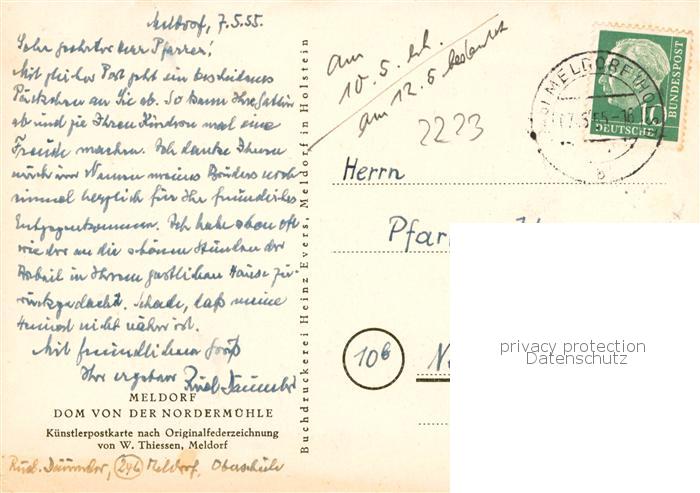 Meldorf, 7.5.55.
Sehr geehrter Herr Pfarrer!
Mit gleicher Post geht ein bescheidenes
Päckchen an Sie ab. So kann Ihre Gattin
ab und zu Ihren Kindern mal eine
Freude machen. Ich danke Ihnen
auch im Namen meines Bruders noch
einmal herzlich für Ihr freundliches
Entgegenkommen. Ich habe schon oft
wieder an die schönen Stunden der
Arbeit in Ihrem gastlichen Hause zu-
rückgedacht. Schade, daß meine
Heimat nicht näher ist.
Mit freundlichem Gruß
Ihr ergebener
MELDORF
DOM VON DER NORDERMÜHLE
Künstlerpostkarte nach Originalfederzeichnung
von W. Thiessen, Meldorf
Rud. (24b) Meldorf, Oberschule
Buchdruckerei Heinz Evers, Meldorf in Holstein
am
10.5. erh.
am 12.5 bedankt
2223
DEUTSCHE
BUNDESPOST
10
MELDORF (HOLST
7.5.55-16
b
Herrn
Pfar
10b
N
privacy protection
Datenschutz